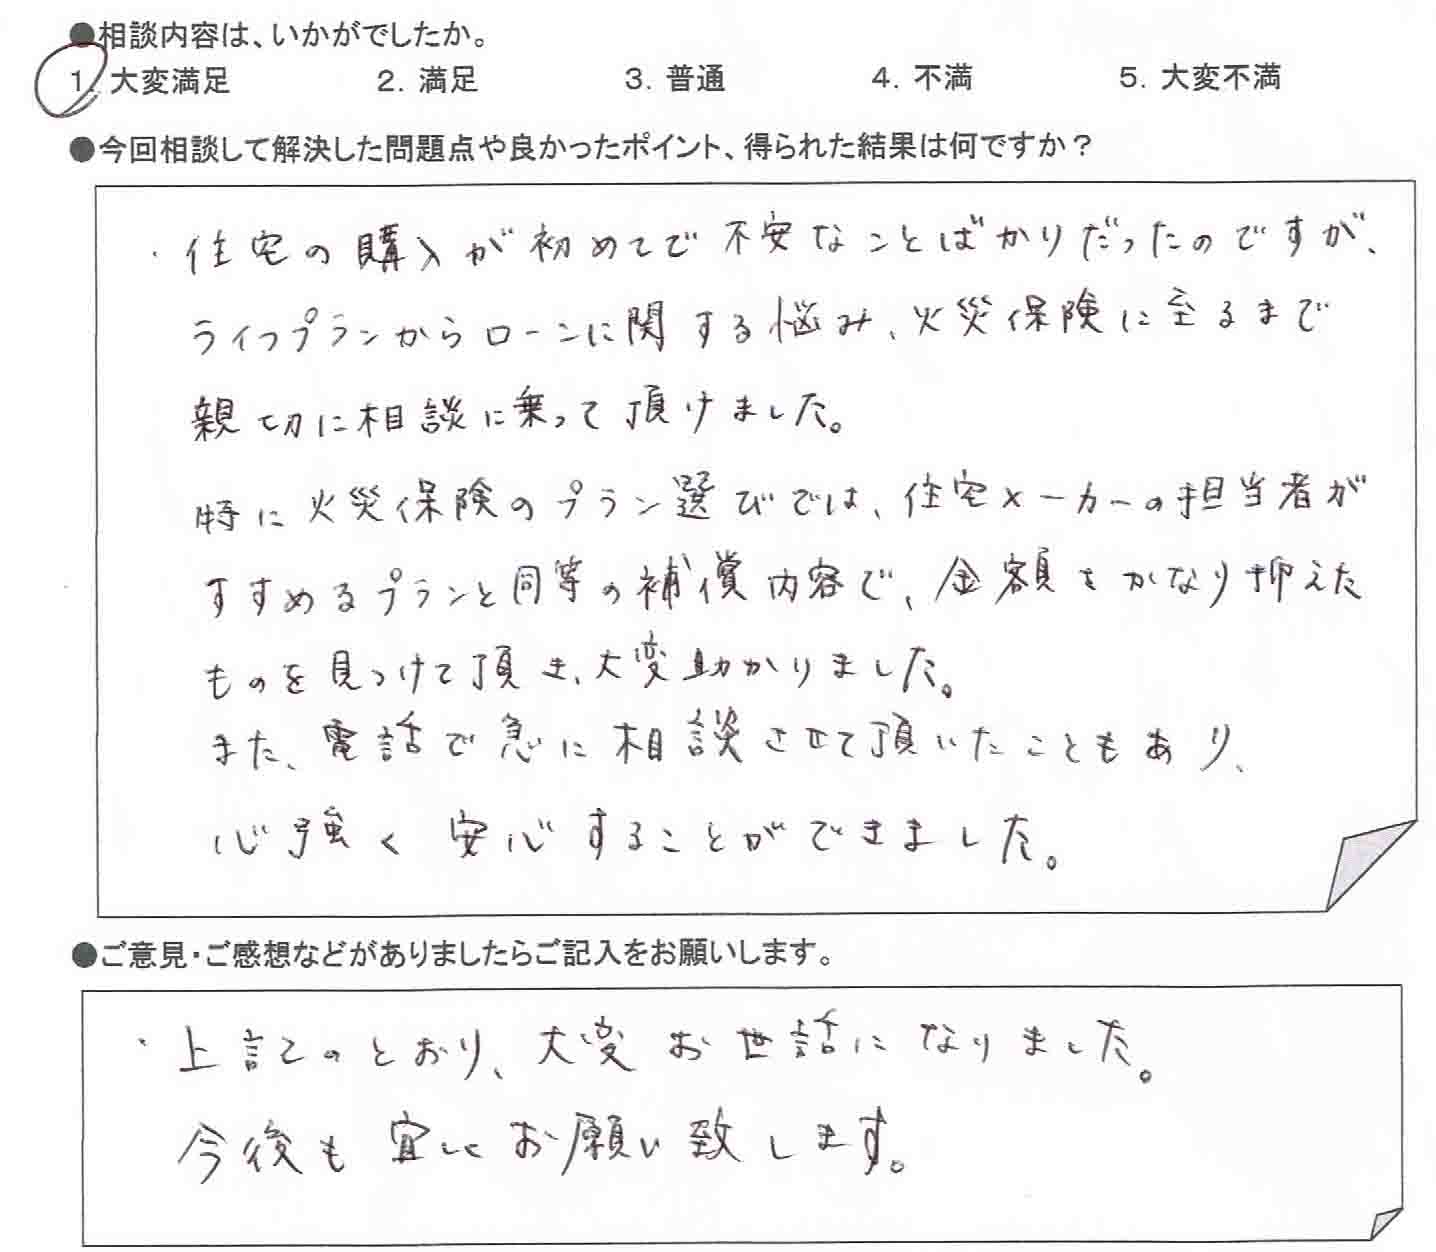 ●相談内容は、いかがでしたか。
1. 大変満足 2. 満足 3. 普通 4. 不満 5. 大変不満
●今回相談して解決した問題点や良かったポイント、得られた結果は何ですか？
・住宅の購入が初めてで不安なことばかりだったのですが、
ライフプランからローンに関する悩み、火災保険に至るまで
親切に相談に乗って頂けました。
特に火災保険のプラン選びでは、住宅メーカーの担当者が
すすめるプランと同等の補償内容で、金額をかなり抑えた
ものを見つけて頂き、大変助かりました。
また、電話で急に相談させて頂いたこともあり、
心強く安心することができました。
●ご意見・ご感想などがありましたらご記入をお願いします。
・上記のとおり、大変お世話になりました。
今後も宜しくお願い致します。